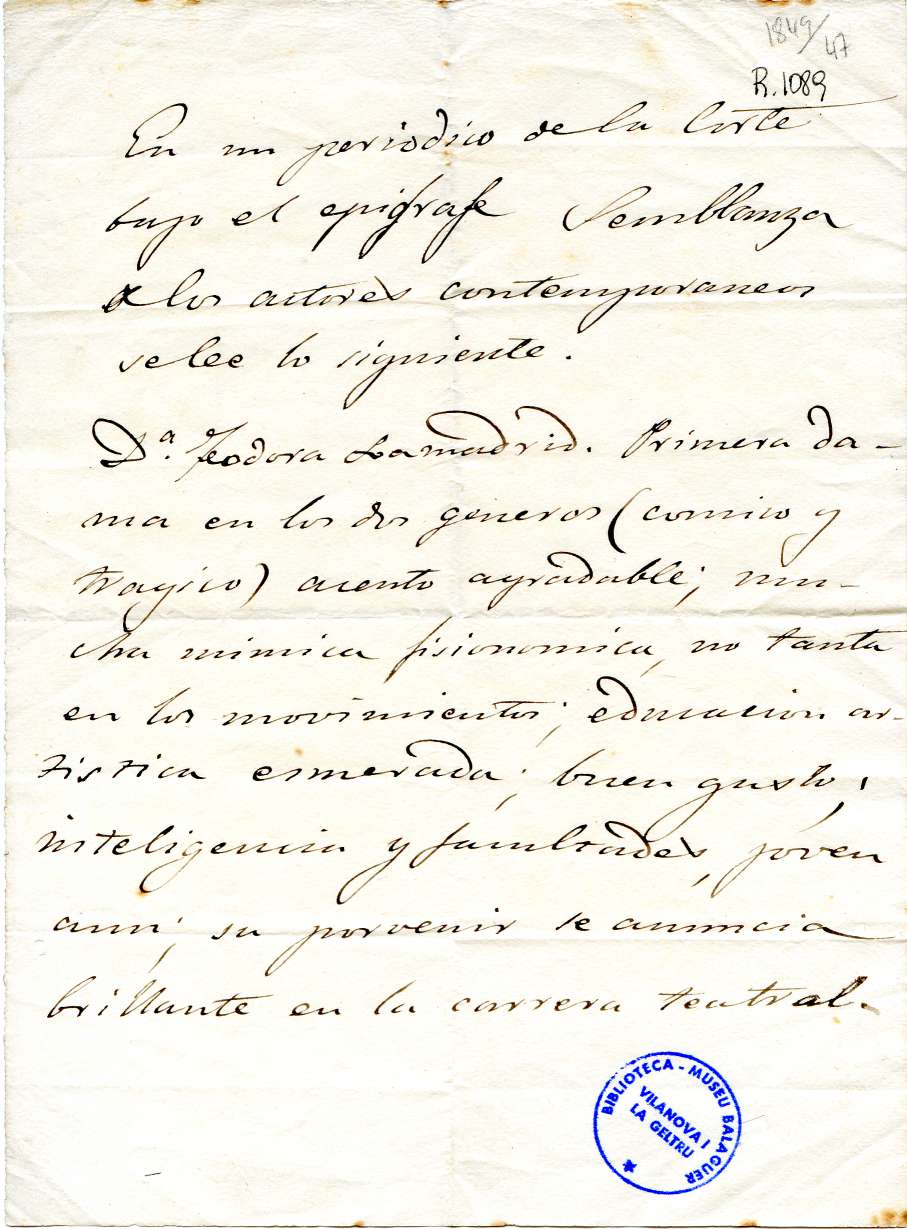 1849/47
R.1089
En un periodico de la Corte
bajo el epigrafe Semblanza
a los actores contemporaneos
se lee lo siguiente.
D.ª Teodora Lamadrid. Primera da-
ma en los dos generos (comico y
tragico) acento agradable; mu-
cha mimica fisionomica, no tanta
en los movimientos; educacion ar-
tistica esmerada; buen gusto;
inteligencia y facultades, jóven
aun; su porvenir se anuncia
brillante en la carrera teatral.
BIBLIOTECA - MUSEU BALAGUER
VILANOVA I
LA GELTRU